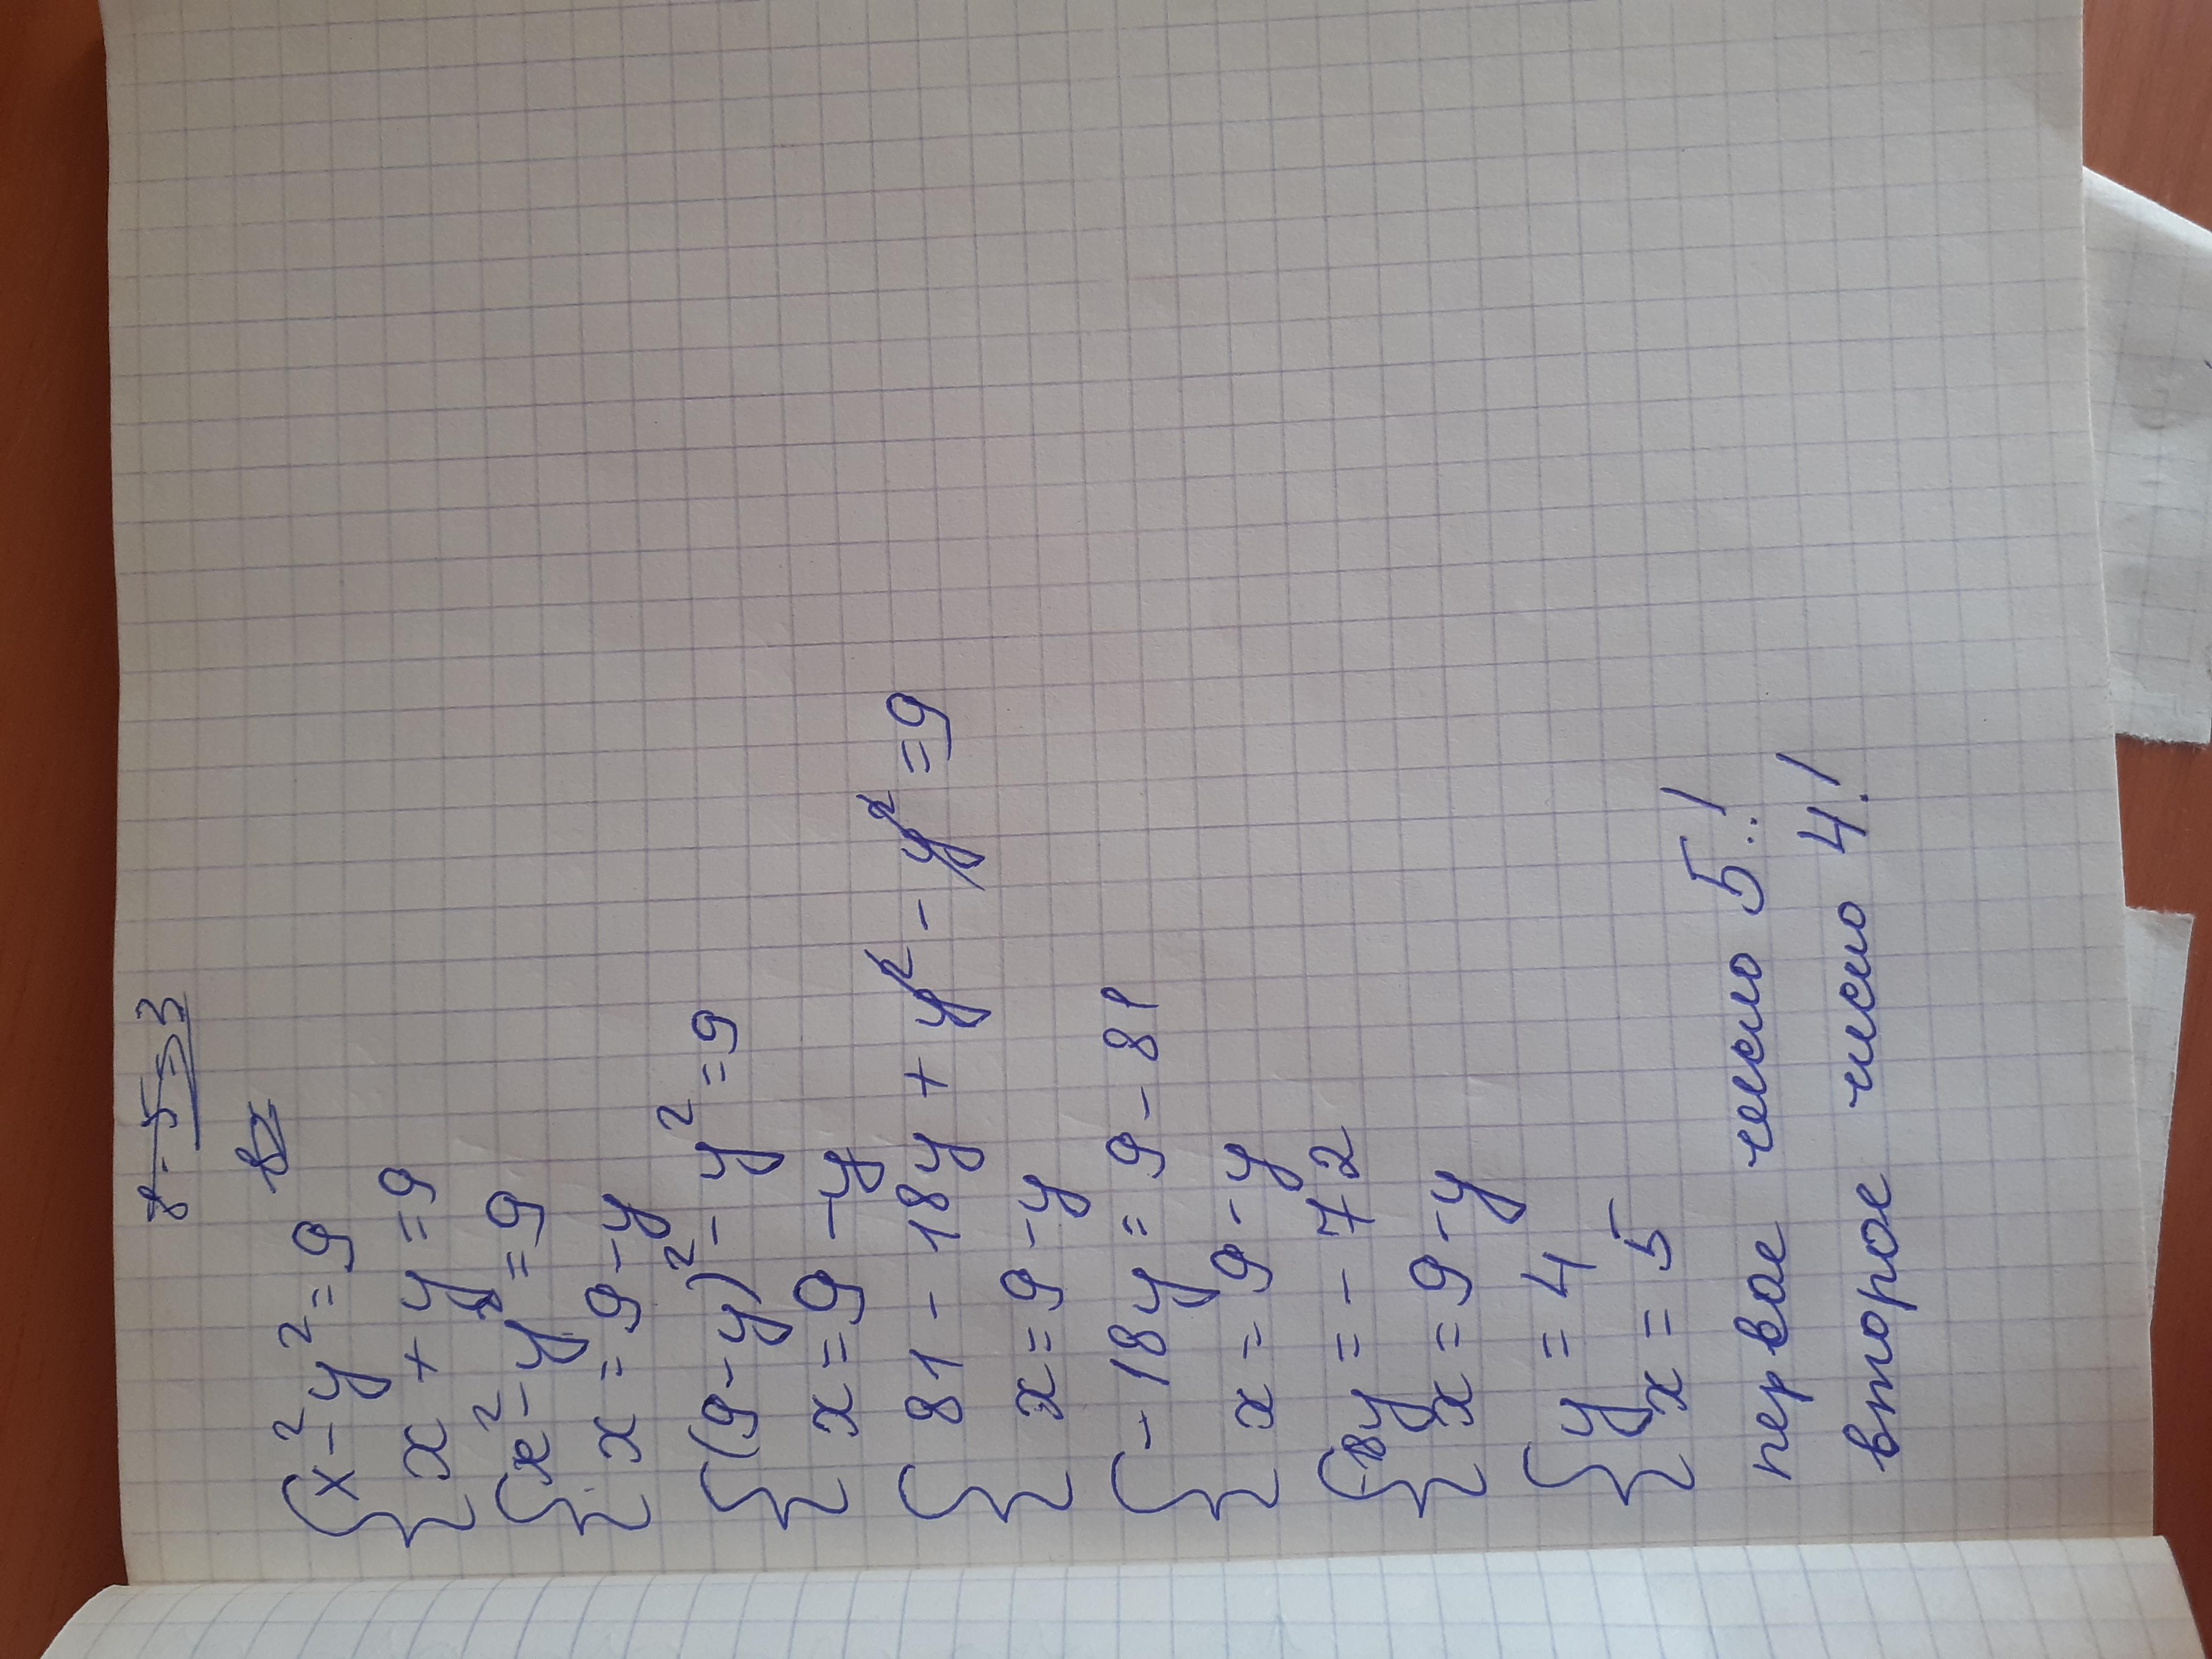 8-5=3
x²-y²=9
x+y=9
x²-y²=9
x=9-y
(9-y)²-y²=9
x=9-y
81-18y+y²-y²=9
x=9-y
-18y=9-81
x=9-y
-18y=-72
x=9-y
y=4
x=5
первое число 5..!
второе число 4.!